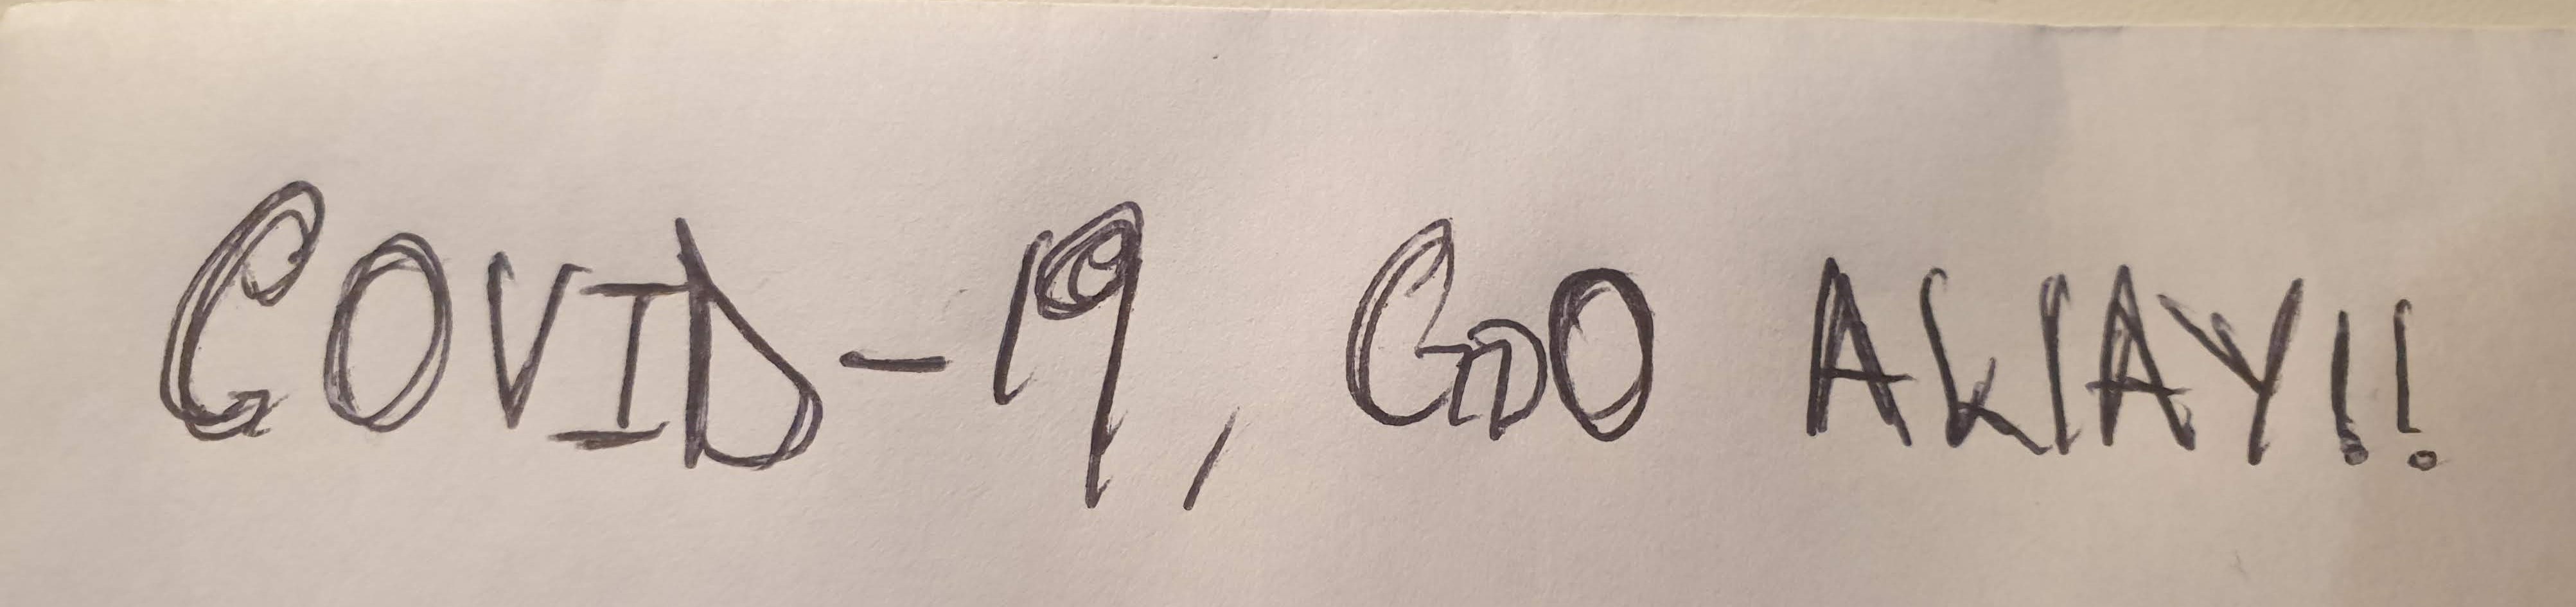 COVID-19, GO AWAY!!